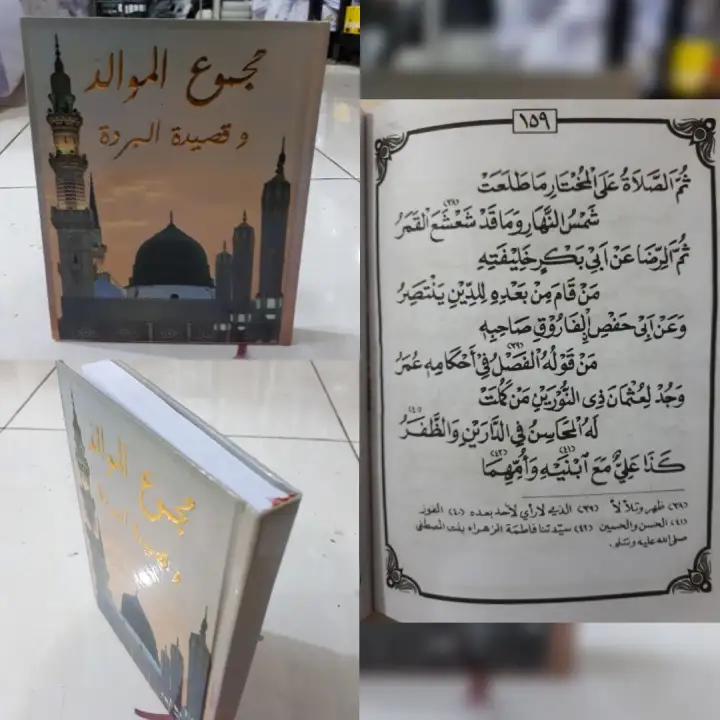 مجموع الموالد
وقصيدة البردة
١٥٩
ثُمَّ الصَّلَاةُ عَلَى الْمُخْتَارِ مَا طَلَعَتْ
شَمْسُ النَّهَارِ وَمَا قَدْ شَعْشَعَ (٣٨) الْقَمَرُ
ثُمَّ الرِّضَا عَنْ اَبِيْ بَكْرٍ خَلِيْفَتِهِ
مَنْ قَامَ مِنْ بَعْدِهِ لِلدِّيْنِ يَنْتَصِرُ
وَعَنْ اَبِيْ حَفْصٍ اِلْفَارُوْقِ صَاحِبِهِ
مَنْ قَوْلُهُ الْفَصْلُ (٣٩) فِيْ اَحْكَامِهِ عُمَرُ
وَجُدْ لِعُثْمَانَ ذِى النُّوْرَيْنِ مَنْ كَمُلَتْ
لَهُ الْمَحَاسِنُ فِي الدَّارَيْنِ وَالظَّفَرُ (٤٠)
كَذَا عَلِيٌّ مَعَ ابْنَيْهِ (٤١) وَاُمِّهِمَا (٤٢)
(٣٨) ظهر وتلألأ (٣٩) الذي لا رأي لأحد بعده (٤٠) الفوز
(٤١) الحسن والحسين (٤٢) سيّدتنا فاطمة الزهراء بنت المصطفى
صلى الله عليه وسلم.
مجموع الموالد